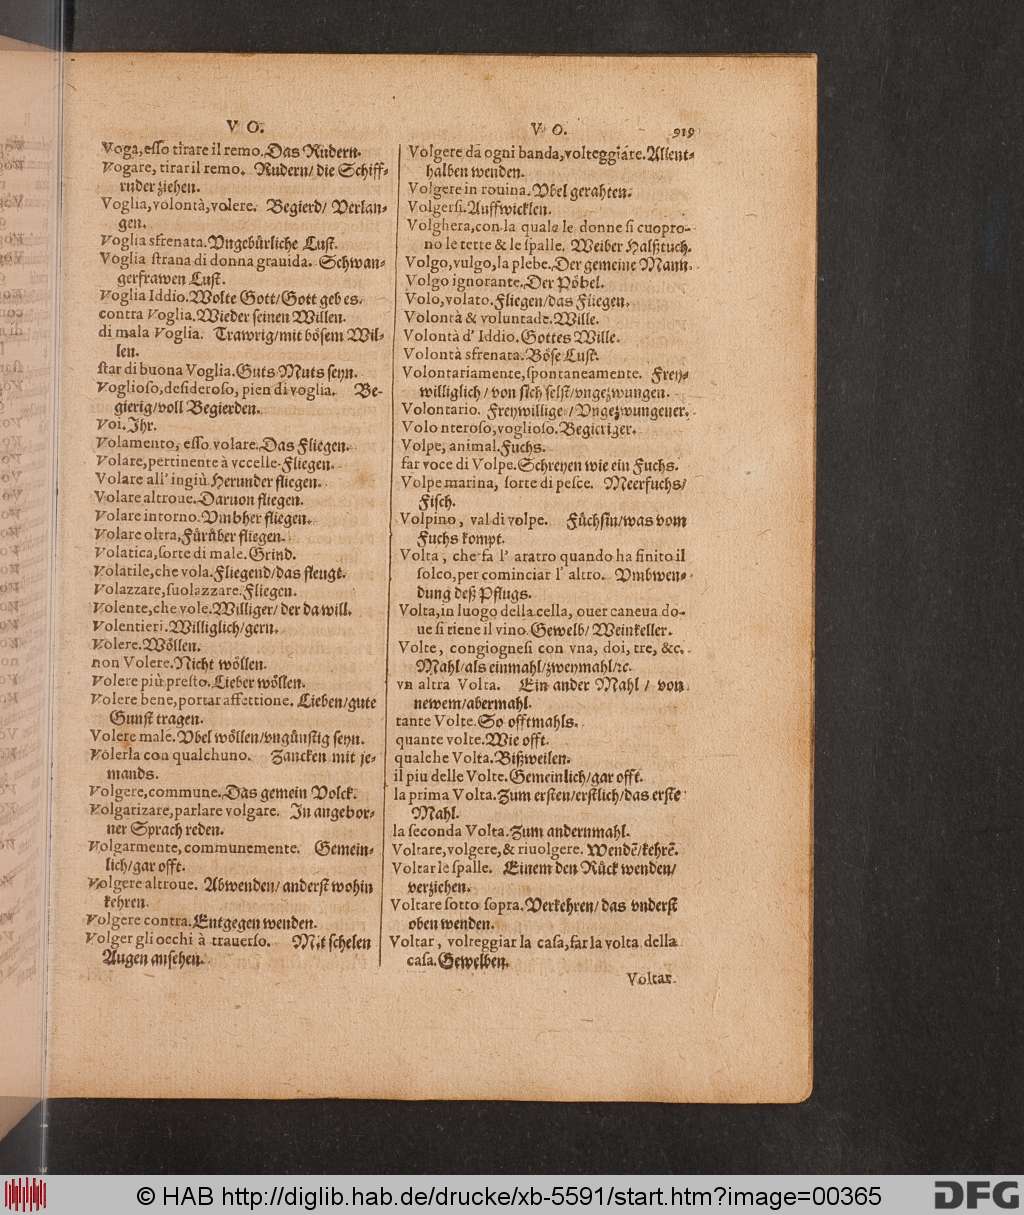 V O.
Voga, eſſo tirare il remo. Das Rudern.
Vogare, tirar il remo. Rudern/ die Schiff-
ruder ziehen.
Voglia, volontà, volere. Begierd/ Verlan-
gen.
Voglia sfrenata. Vngebürliche Luſt.
Voglia ſtrana di donna grauida. Schwan-
gerfrawen Luſt.
Voglia Iddio. Wolte Gott/ Gott geb es.
contra Voglia. Wieder ſeinen Willen.
di mala Voglia. Trawrig/ mit böſem Wil-
len.
ſtar di buona Voglia. Guts Muts ſeyn.
Voglioſo, deſideroſo, pien di voglia. Be-
gierig/ voll Begierden.
Voi. Ihr.
Volamento, eſſo volare. Das Fliegen.
Volare, pertinente à vccelle. Fliegen.
Volare all' ingiù. Herunder fliegen.
Volare altroue. Daruon fliegen.
Volare intorno. Vmbher fliegen.
Volare oltra, Fürüber fliegen.
Volatica, ſorte di male. Grind.
Volatile, che vola. Fliegend/ das fleugt.
Volazzare, ſuolazzare. Fliegen.
Volente, che vole. Williger/ der da will.
Volentieri. Williglich/ gern.
Volere. Wöllen.
non Volere. Nicht wöllen.
Volere più preſto. Lieber wöllen.
Volere bene, portar affettione. Lieben/ gute
Gunſt tragen.
Volere male. Vbel wöllen/ vngünſtig ſeyn.
Volerla con qualchuno. Zancken mit je-
mands.
Volgere, commune. Das gemein Volck.
Volgarizare, parlare volgare. In angebor-
ner Sprach reden.
Volgarmente, communemente. Gemein-
lich/ gar offt.
Volgere altroue. Abwenden/ anderſt wohin
kehren.
Volgere contra. Entgegen wenden.
Volger gli occhi à trauerſo. Mit ſchelen
Augen anſehen.
V O. 919
Volgere da ogni banda, volteggiare. Allent-
halben wenden.
Volgere in rouina. Vbel gerahten.
Volgerſi. Auffwicklen.
Volghera, con la quale le donne ſi cuopro-
no le tette & le ſpalle. Weiber Halßtuch.
Volgo, vulgo, la plebe. Der gemeine Mann.
Volgo ignorante. Der Pöbel.
Volo, volato. Fliegen/ das Fliegen.
Volontà & voluntade. Wille.
Volontà d' Iddio. Gottes Wille.
Volontà sfrenata. Böſe Luſt.
Volontariamente, ſpontaneamente. Frey-
williglich/ von ſich ſelſt/ vngezwungen.
Volontario. Freywillige/ Vngezwungener.
Volonteroſo, voglioſo. Begieriger.
Volpe, animal. Fuchs.
far voce di Volpe. Schreyen wie ein Fuchs.
Volpe marina, ſorte di peſce. Meerfuchs/
Fiſch.
Volpino, val di volpe. Füchſin/ was vom
Fuchs kompt.
Volta, che fa l' aratro quando ha finito il
ſolco, per cominciar l' altro. Vmbwen-
dung deß Pflugs.
Volta, in luogo della cella, ouer caneua do-
ue ſi tiene il vino. Gewelb/ Weinkeller.
Volte, congiogneſi con vna, doi, tre, &c.
Mahl/ als einmahl/ zweymahl/ ꝛc.
vn altra Volta. Ein ander Mahl/ von
newem/ abermahl.
tante Volte. So offtmahls.
quante volte. Wie offt.
qualche Volta. Bißweilen.
il piu delle Volte. Gemeinlich/ gar offt.
la prima Volta. Zum erſten/ erſtlich/ das erſte
Mahl.
la ſeconda Volta. Zum andernmahl.
Voltare, volgere, & riuolgere. Wendē/ kehrē.
Voltar le ſpalle. Einem den Rück wenden/
verziehen.
Voltare ſotto ſopra. Verkehren/ das vnderſt
oben wenden.
Voltar, volteggiar la caſa, far la volta della
caſa. Gewelben.
Voltar
© HAB http://diglib.hab.de/drucke/xb-5591/start.htm?image=00365
DFG